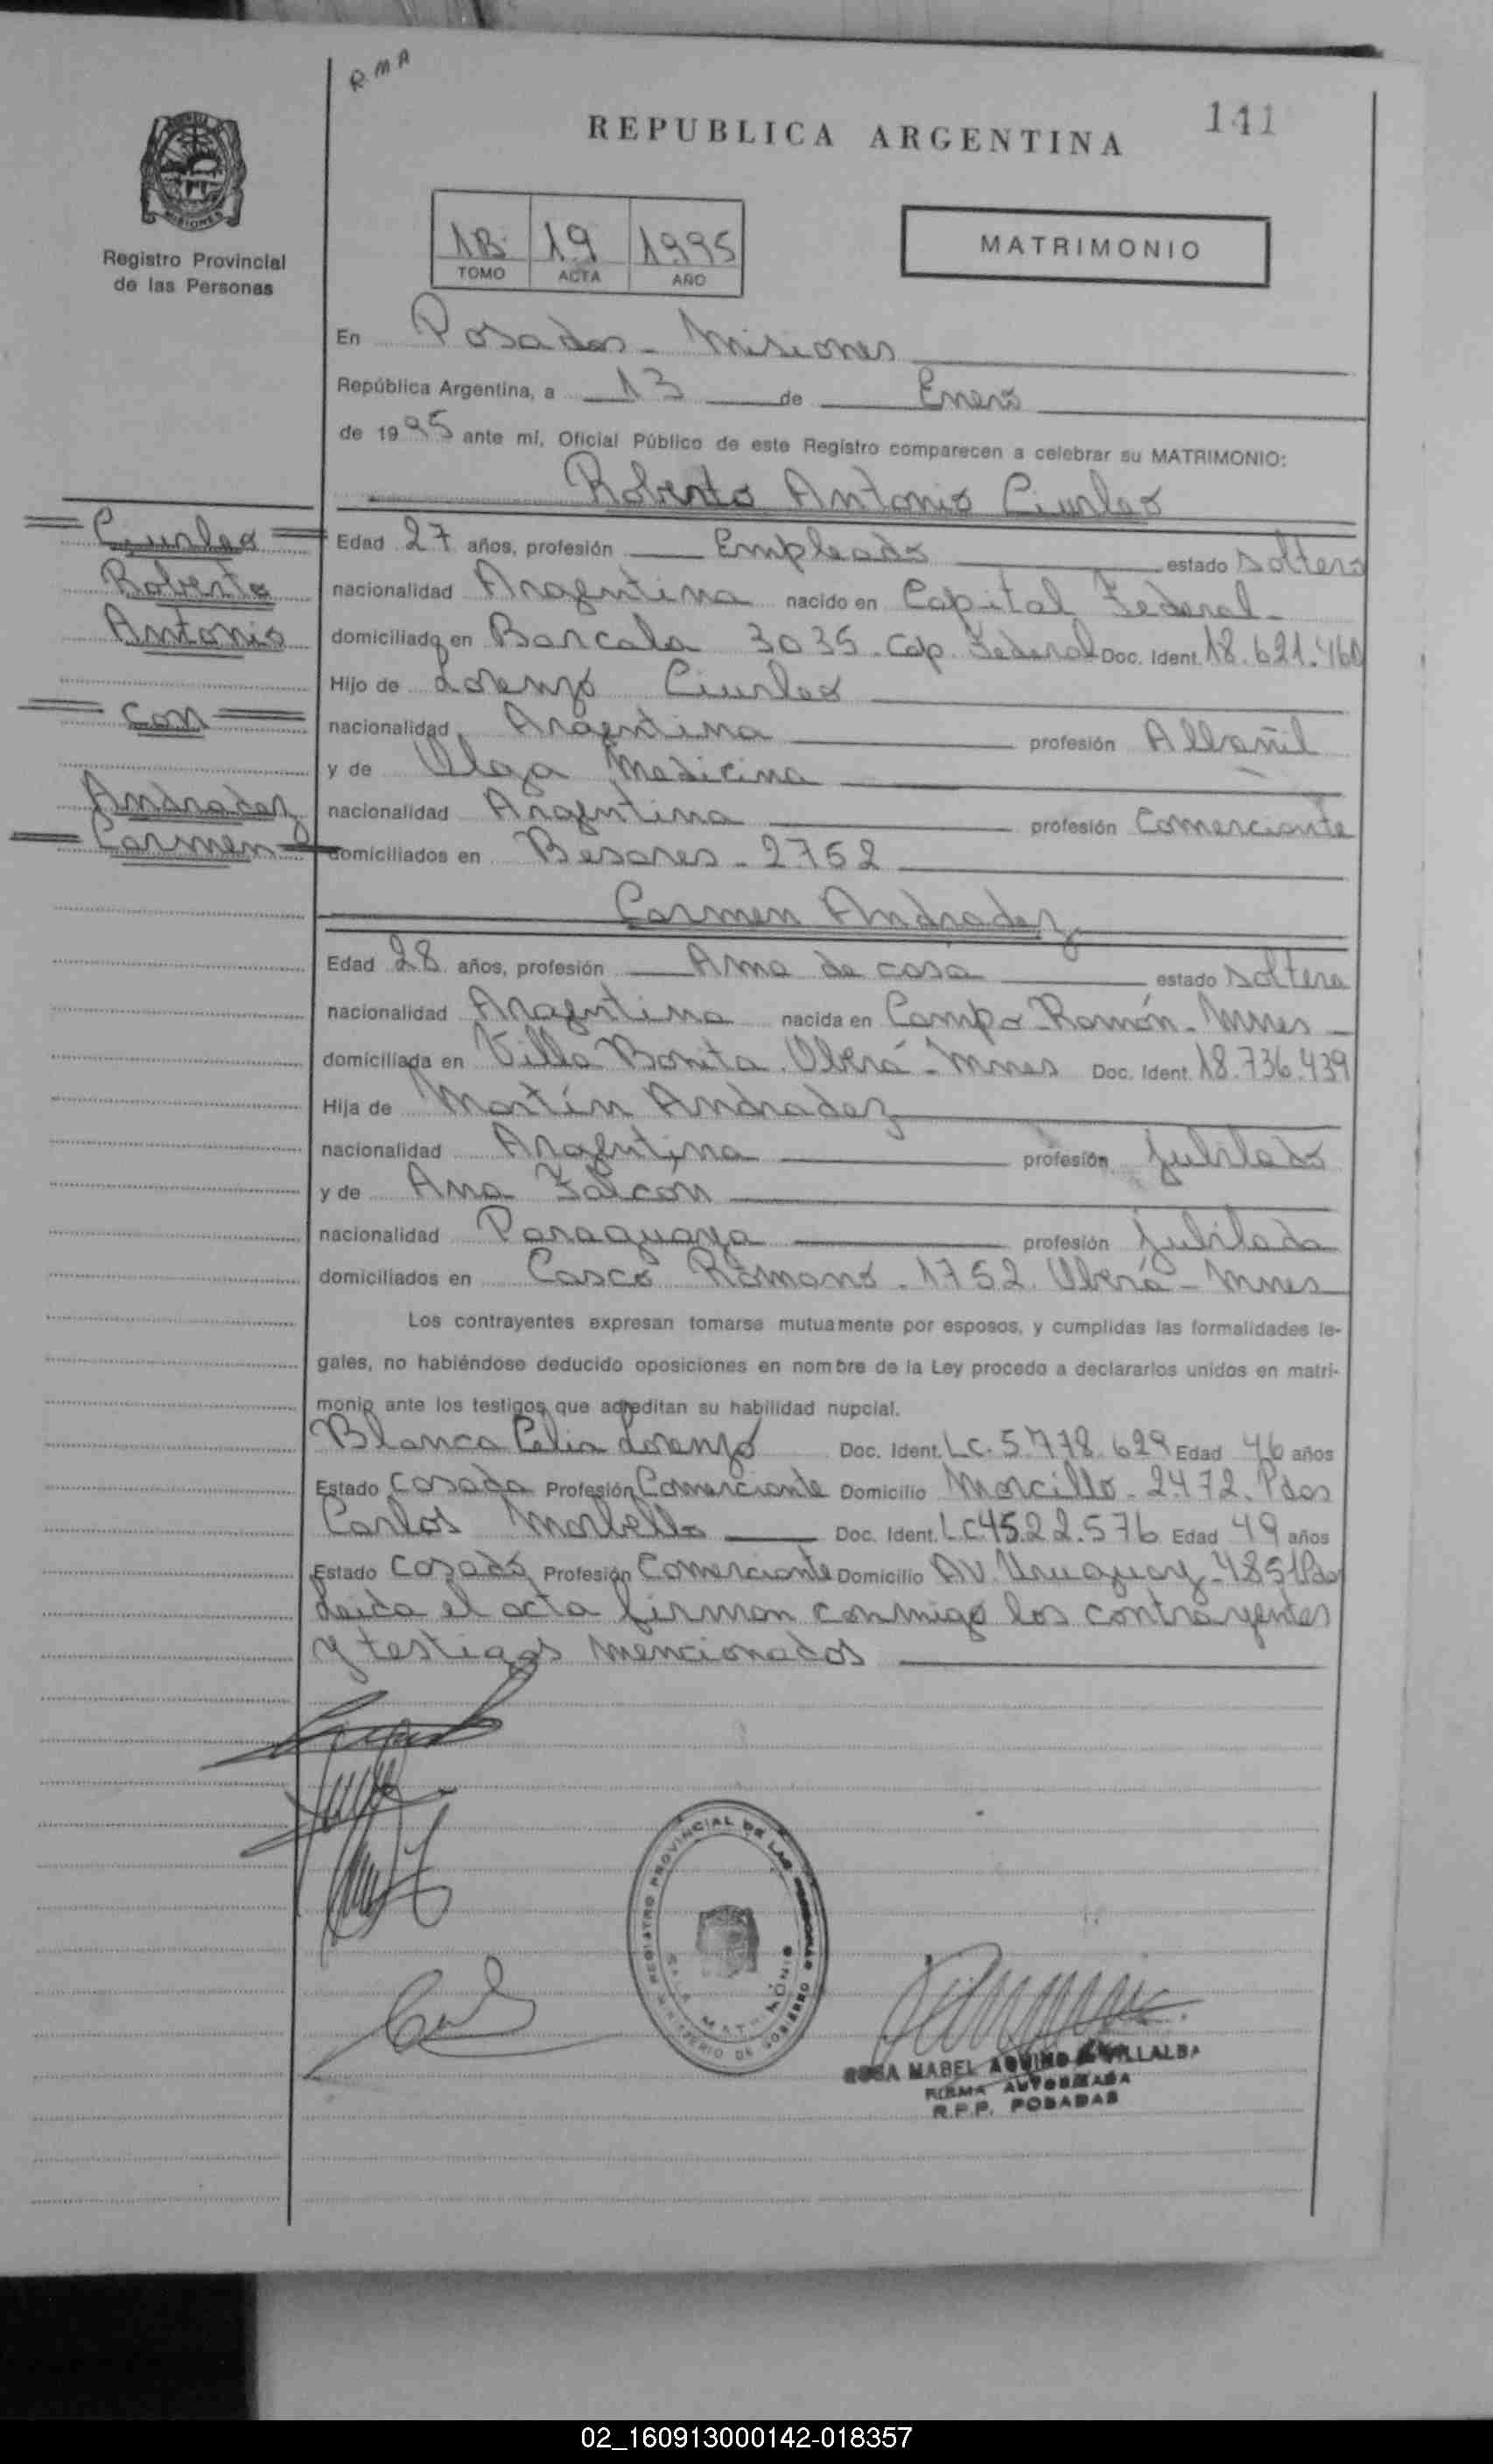 R.M.A
141
REPUBLICA ARGENTINA
MISIONES
Registro Provincial
de las Personas
1B 19 1995
TOMO ACTA AÑO
MATRIMONIO
En Posadas - Misiones
República Argentina, a 13 de Enero
de 1995 ante mí, Oficial Público de este Registro comparecen a celebrar su MATRIMONIO:
Roberto Antonio Ciurleo
Ciurleo
Roberto
Antonio
con
Andradez
Carmen
Edad 27 años, profesión Empleado estado soltero
nacionalidad Argentina nacido en Capital Federal-
domiciliado en Barcala 3035 - Cap. Federal Doc. Ident. 18.621.460
Hijo de Lorenzo Ciurleo
nacionalidad Argentina profesión Albañil
y de Olga Medicina
nacionalidad Argentina profesión Comerciante
domiciliados en Besares - 2752
Carmen Andradez
Edad 28 años, profesión Ama de casa estado soltera
nacionalidad Argentina nacida en Campo Ramón - Mnes
domiciliada en Villa Bonita. Oberá - Mnes Doc. Ident. 18.736.439
Hija de Martín Andradez
nacionalidad Argentina profesión jubilado
y de Ana Falcon
nacionalidad Paraguaya profesión jubilada
domiciliados en Casco Romano - 1752. Oberá - Mnes
Los contrayentes expresan tomarse mutuamente por esposos, y cumplidas las formalidades le-
gales, no habiéndose deducido oposiciones en nombre de la Ley procedo a declararlos unidos en matri-
monio ante los testigos que acreditan su habilidad nupcial.
Blanca Celia Lorenzo Doc. Ident. L.C. 5.778.629 Edad 46 años
Estado casada Profesión Comerciante Domicilio Morcillo - 2472. Pdas
Carlos Morbello Doc. Ident. L.C 4522.576 Edad 49 años
Estado casado Profesión Comerciante Domicilio AV. Uruguay - 4851 Pdas
Leída el acta firman conmigo los contrayentes
y testigos mencionados
REGISTRO PROVINCIAL DE LAS PERSONAS
MINISTERIO DE GOBIERNO
SALA MATRIMONIO
ROSA MABEL AQUINO VILLALBA
FIRMA AUTORIZADA
R.P.P. POSADAS
02_160913000142-018357